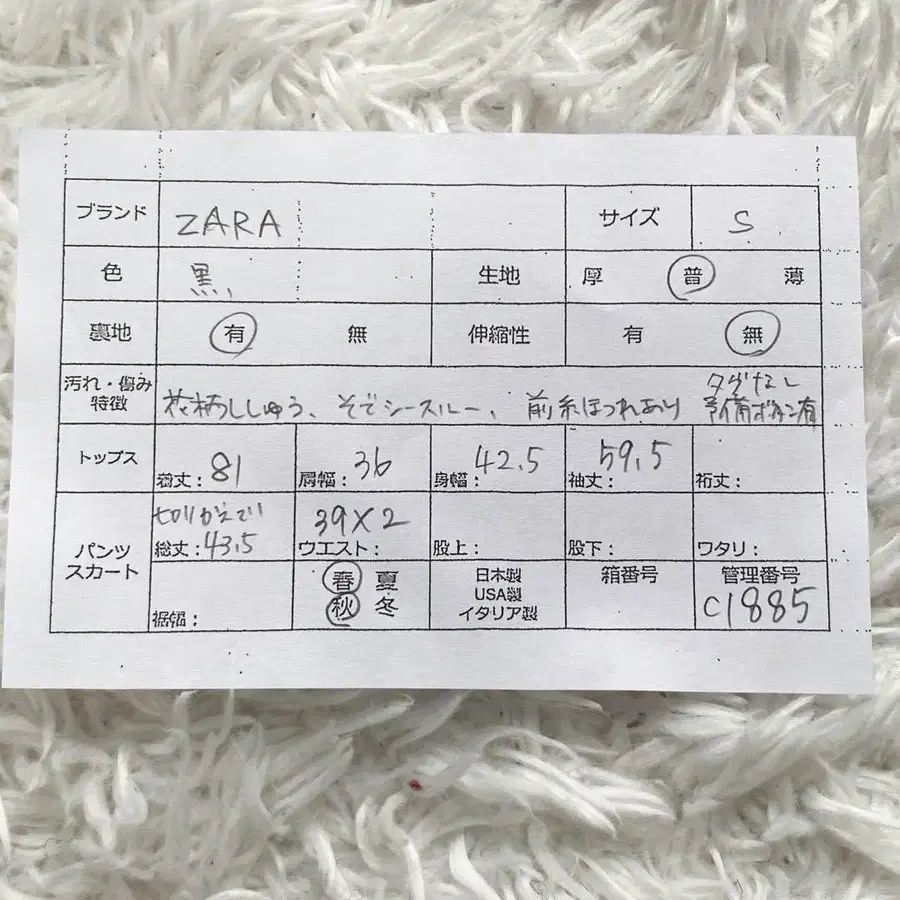 ブランド ZARA サイズ S
色 黒、 生地 厚 普 薄
裏地 有 無 伸縮性 有 無
汚れ・傷み
特徴
花柄ししゅう、そでシースルー、前糸ほつれあり
タグなし
予備ボタン有
トップス 着丈: 81 肩幅: 36 身幅: 42.5 袖丈: 59.5 裄丈:
パンツ
スカート
切りかえでい
総丈: 43.5 ウエスト: 39×2 股上: 股下: ワタリ:
裾幅:
春 夏
秋 冬
日本製
USA製
イタリア製
箱番号
管理番号
C1885